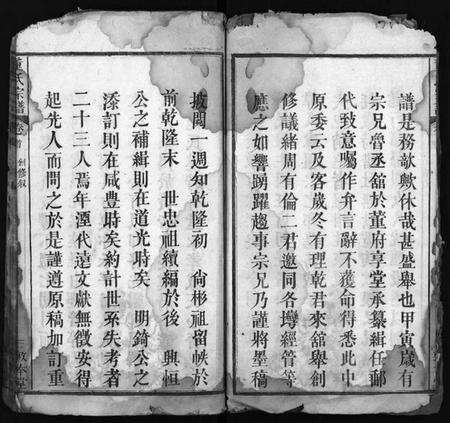 譜是務歟歟休哉甚盛舉也甲寅歲有
宗兄魯丞舘於董府享堂承纂緝任郵
代致意囑作弁言辭不獲命得悉此中
原委云及客歲冬有理乾君來舘舉創
修議緒周有倫二君邀同各塆經管等
應之如響踴躍趨事宗兄乃謹將墨稿
披閱一週知乾隆初 尙彬祖留帙於
前乾隆末 世忠祖續編於後 興恒
公之補緝則在道光時矣 明錡公之
添訂則在咸豐時矣約計世系失考者
二十三人焉年湮代遠文獻無徵安得
起先人而問之於是謹遵原稿加訂重
董氏宗譜 卷首 創修叙
敦本堂